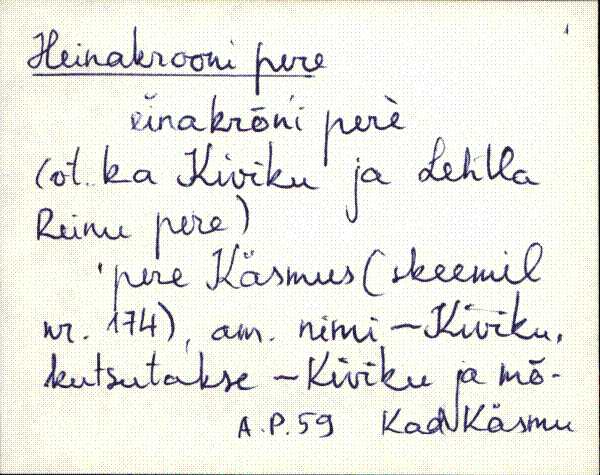 1
Heinakrooni pere
e̮inakrōni perè
(ot. ka Kiviku ja Lehtla
Reinu pere)
'pere Käsmus (skeemil
nr. 174), am. nimi – Kiviku,
kutsutakse – Kiviku ja mõ-
A.P. 59 Kad Käsmu